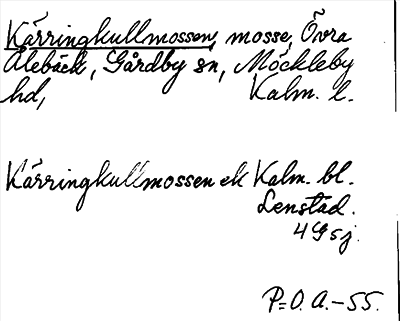 Kärringkullmossen, mosse, Övra
Ålebäck, Gårdby sn, Möckleby
hd, Kalm. l.
Kärringkullmossen ek Kalm. bl.
Lenstad.
4G5j.
P=O.A.-55.